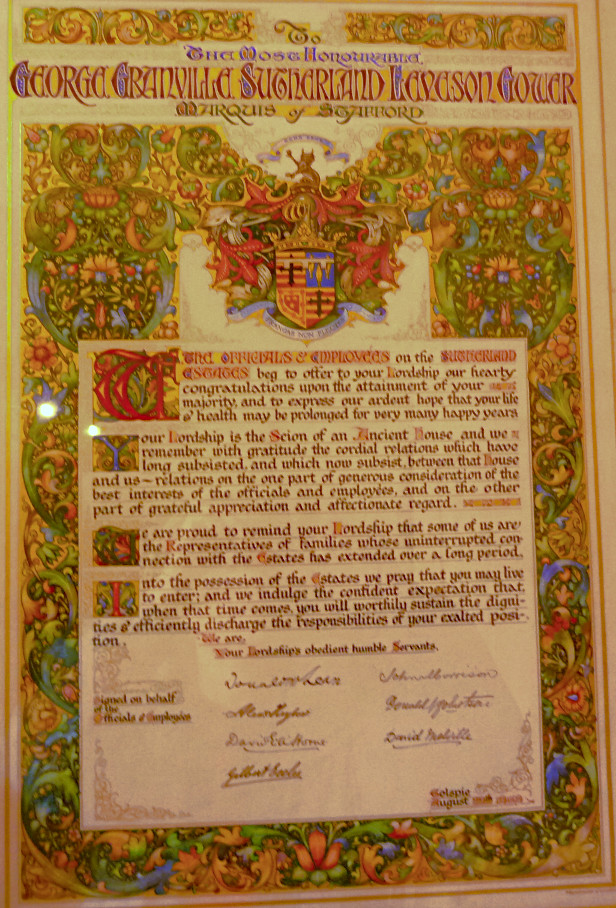 To
The Most Honourable,
George Granville Sutherland Leveson Gower
Marquis of Stafford
Frangas non flectes
We, the Officials & Employees on the Sutherland
Estates beg to offer to your Lordship our hearty
congratulations upon the attainment of your
majority, and to express our ardent hope that your life
& health may be prolonged for very many happy years
Your Lordship is the Scion of an Ancient House and we
remember with gratitude the cordial relations which have
long subsisted, and which now subsist, between that House
and us ~ relations on the one part of generous consideration of the
best interests of the officials and employees, and on the other
part of grateful appreciation and affectionate regard.
We are proud to remind your Lordship that some of us are
the Representatives of families whose uninterrupted con-
nection with the Estates has extended over a long period.
Into the possession of the Estates we pray that you may live
to enter; and we indulge the confident expectation that,
when that time comes, you will worthily sustain the digni-
ties & efficiently discharge the responsibilities of your exalted posi-
tion. We are,
Your Lordship's obedient humble Servants,
Signed on behalf
of the
Officials & Employees
John Morrison
David Melville
Golspie
August